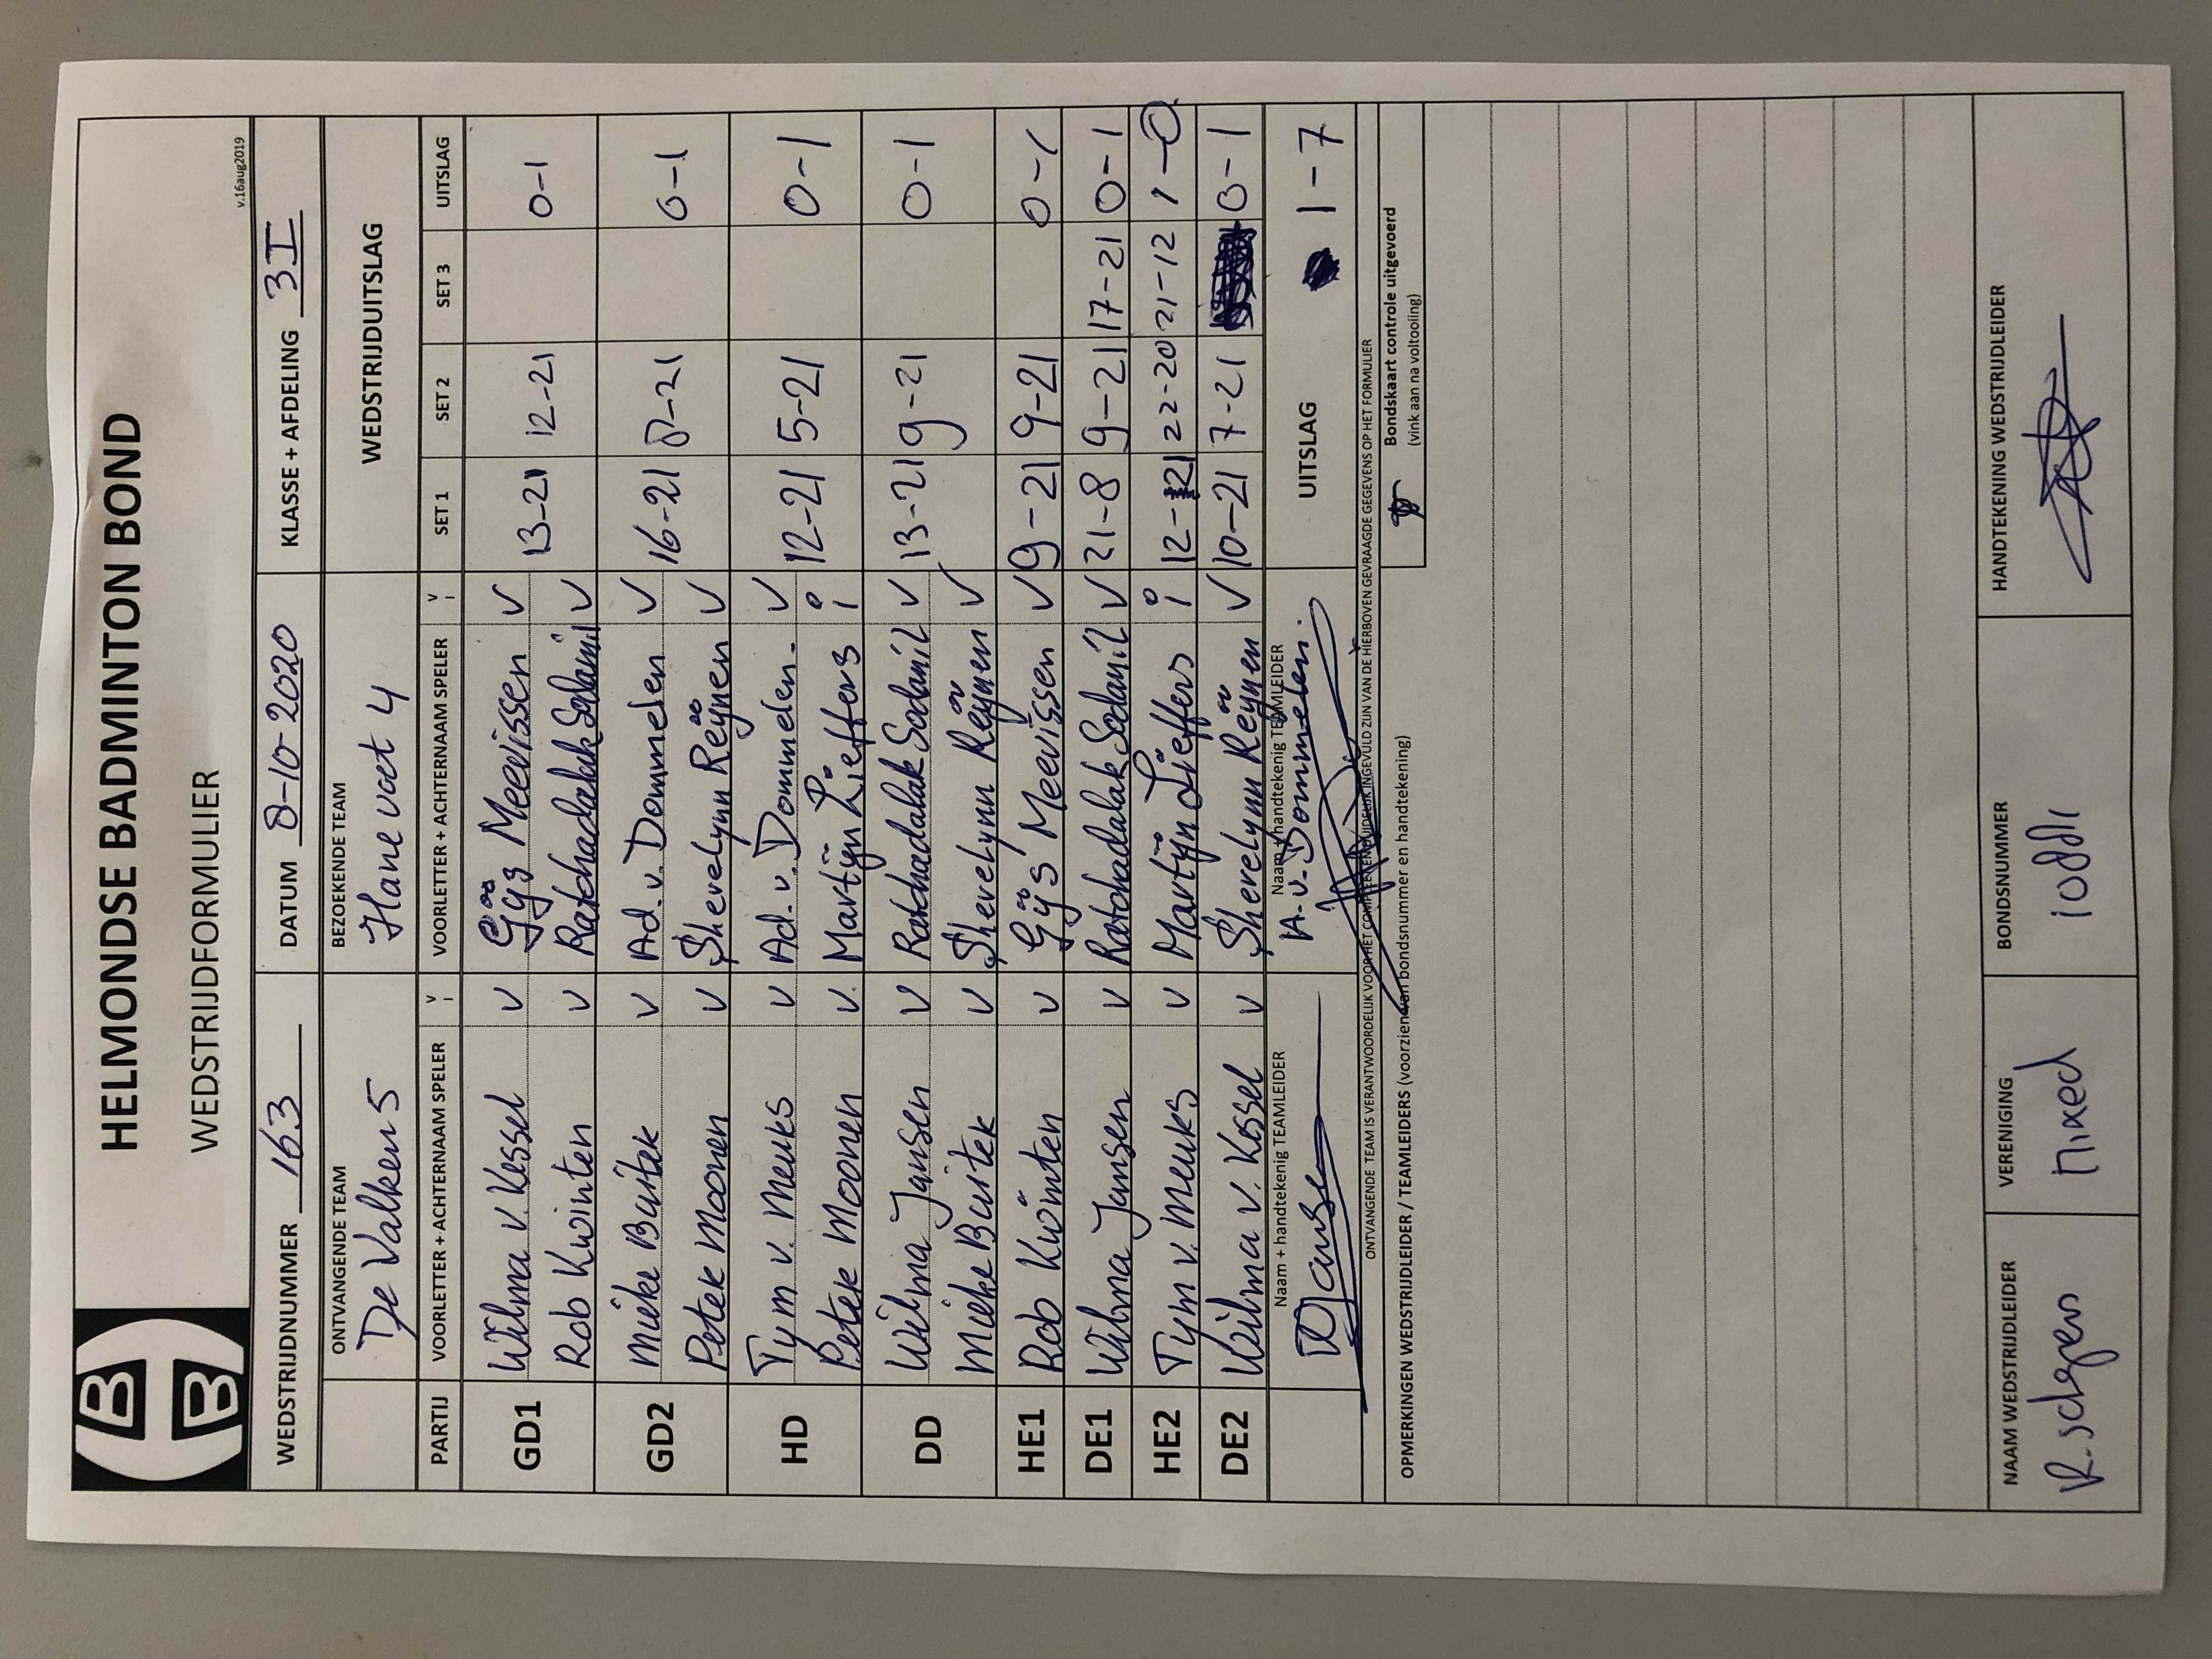 HELMONDSE BADMINTON BOND
WEDSTRIJDFORMULIER
v.16aug2019
WEDSTRIJDNUMMER 163 DATUM 8-10-2020 KLASSE + AFDELING 3I
ONTVANGENDE TEAM BEZOEKENDE TEAM WEDSTRIJDUITSLAG
De Valken 5 Hanevoet 4
PARTIJ VOORLETTER + ACHTERNAAM SPELER V I VOORLETTER + ACHTERNAAM SPELER V I SET 1 SET 2 SET 3 UITSLAG
GD1 Wilma v. Kessel V Gijs Meevissen V 13-21 12-21 0-1
Rob Kwinten V Ratchadalak Sodamil V
GD2 Mieke Buitek V Ad. v. Dommelen V 16-21 8-21 0-1
Petek Moonen V Shevelynn Reijnen V
HD Tym v. Meuks V Ad. v. Dommelen. V 12-21 5-21 0-1
Petek Moonen V. Martijn Lieffers i
DD Wilma Jansen V Ratchadalak Sodamil V 13-21 9-21 0-1
Mieke Buitek V Shevelynn Reijnen V
HE1 Rob Kwinten V Gijs Meevissen V 9-21 9-21 0-1
DE1 Wilma Jansen V Ratchadalak Sodamil V 21-8 9-21 17-21 0-1
HE2 Tym v. Meuks V Martijn Lieffers i 12-21 22-20 21-12 1-0
DE2 Wilma v. Kessel V Shevelynn Reijnen V 10-21 7-21 0-1
Naam + handtekenig TEAMLEIDER Naam + handtekenig TEAMLEIDER UITSLAG 1-7
WJansen A.v. Dommelen.
ONTVANGENDE TEAM IS VERANTWOORDELIJK VOOR HET COMPLEET EN DUIDELIJK INGEVULD ZIJN VAN DE HIERBOVEN GEVRAAGDE GEGEVENS OP HET FORMULIER
OPMERKINGEN WEDSTRIJDLEIDER / TEAMLEIDERS (voorzien van bondsnummer en handtekening)
Bondskaart controle uitgevoerd
(vink aan na voltooiing)
NAAM WEDSTRIJDLEIDER VERENIGING BONDSNUMMER HANDTEKENING WEDSTRIJDLEIDER
R. Schepers Mixed